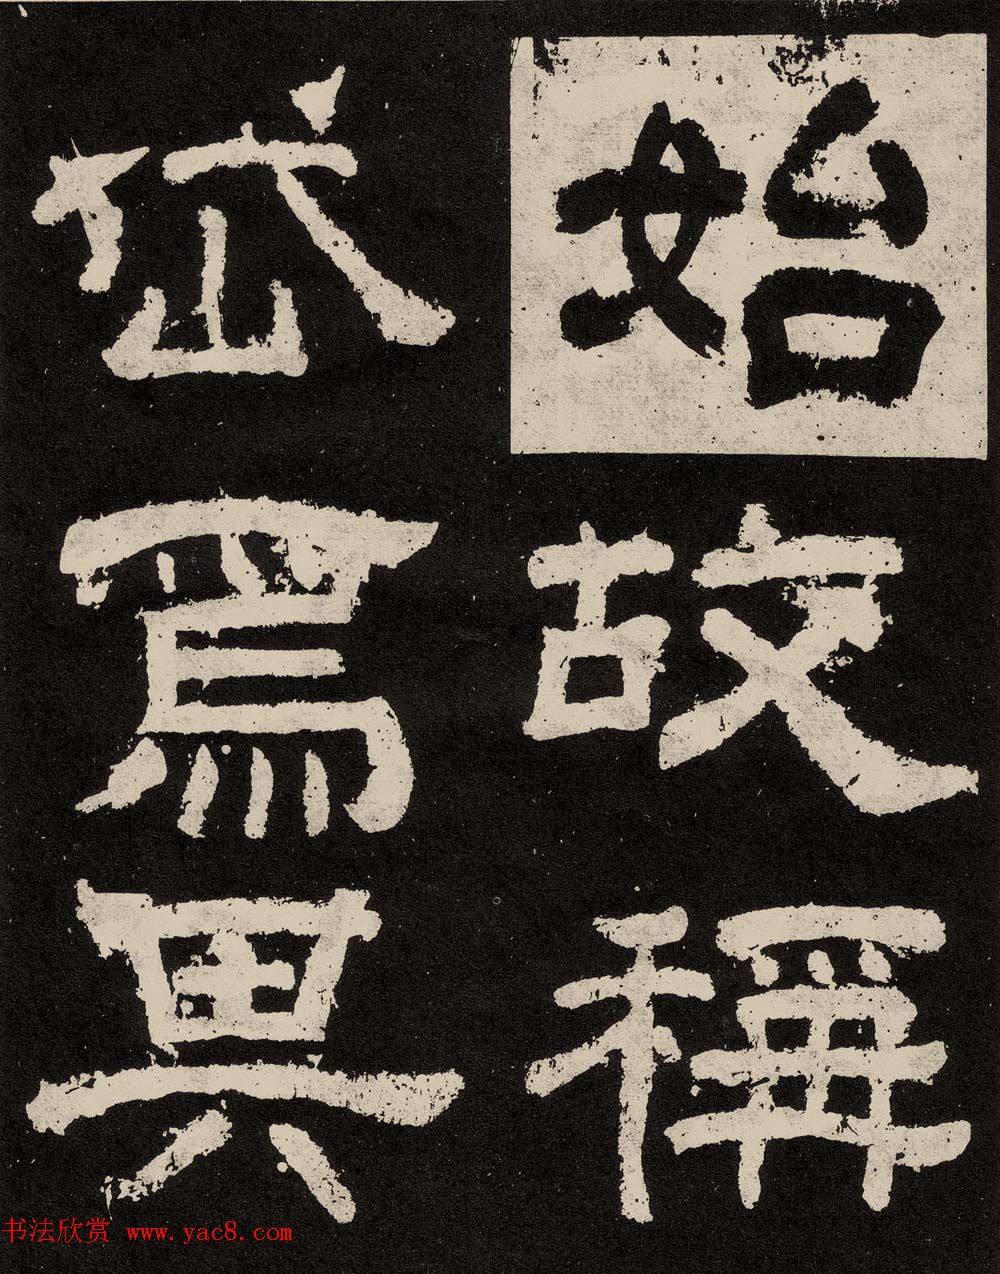 始故稱
岱爲其
书法欣赏 www.yac8.com